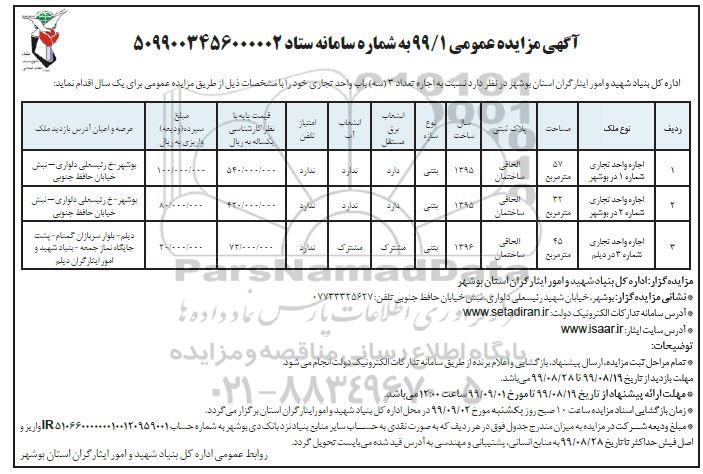 آگهی مزایده عمومی ۹۹/۱ به شماره سامانه ستاد ۵۰۹۹۰۰۳۴۵۶۰۰۰۰۰۲
اداره کل بنیاد شهید و امور ایثارگران استان بوشهر در نظر دارد نسبت به اجاره تعداد ۳ (سه) باب واحد تجاری خود را با مشخصات ذیل از طریق مزایده عمومی برای یک سال اقدام نماید:
ردیف نوع ملک مساحت پلاک ثبتی سال ساخت نوع سازه انشعاب برق مستقل انشعاب آب امتیاز تلفن قیمت پایه با نظر کارشناسی یکساله به ریال مبلغ سپرده (ودیعه) واریزی به ریال عرصه و اعیان آدرس بازدید ملک
۱ اجاره واحد تجاری شماره ۱ در بوشهر ۵۷ مترمربع الحاقی ساختمان ۱۳۹۵ بتنی دارد ندارد ندارد ۵۴۰/۰۰۰/۰۰۰ ۱۰۰/۰۰۰/۰۰۰ بوشهر-خ رئیسعلی دلواری – نبش خیابان حافظ جنوبی
۲ اجاره واحد تجاری شماره ۲ در بوشهر ۳۲ مترمربع الحاقی ساختمان ۱۳۹۵ بتنی دارد ندارد ندارد ۴۲۰/۰۰۰/۰۰۰ ۸۰/۰۰۰/۰۰۰ بوشهر-خ رئیسعلی دلواری – نبش خیابان حافظ جنوبی
۳ اجاره واحد تجاری شماره ۳ در دیلم ۴۵ مترمربع الحاقی ساختمان ۱۳۹۶ بتنی مشترک مشترک ندارد ۷۲/۰۰۰/۰۰۰ ۲۰/۰۰۰/۰۰۰ دیلم-بلوار سربازان گمنام-پشت جایگاه نماز جمعه - بنیاد شهید و امور ایثارگران دیلم
مزایده گزار: اداره کل بنیاد شهید و امور ایثارگران استان بوشهر
* نشانی مزایده گزار: بوشهر، خیابان شهید رئیسعلی دلواری، نبش خیابان حافظ جنوبی تلفن: ۰۷۷۳۳۳۲۵۶۲۷
* آدرس سامانه تدارکات الکترونیک دولت: www.setadiran.ir
* آدرس سایت ایثار: www.isaar.ir
توضیحات:
* تمام مراحل ثبت مزایده، ارسال پیشنهاد، بازگشایی و اعلام برنده از طریق سامانه تدارکات الکترونیک دولت انجام می شود.
مهلت بازدید از تاریخ ۹۹/۰۸/۱۹ تا ۹۹/۰۸/۲۸ می‌باشد.
* مهلت ارائه پیشنهاد از تاریخ ۹۹/۰۸/۱۹ تا مورخ ۹۹/۰۹/۰۱ ساعت ۱۲:۰۰ می‌باشد.
* زمان بازگشایی اسناد مزایده ساعت ۱۰ صبح روز یکشنبه مورخ ۹۹/۰۹/۰۲ در محل اداره کل بنیاد شهید و امور ایثارگران استان برگزار می‌گردد.
* مبلغ ودیعه شرکت در مزایده به میزان مندرج جدول فوق در هر ردیف که به صورت نقدی به حساب سایر منابع بنیاد نزد بانک دی بوشهر به شماره حساب واریز و
اصل فیش حداکثر تا تاریخ ۹۹/۰۸/۲۸ به منابع انسانی، پشتیبانی و مهندسی به آدرس قید شده می‌بایست تحویل گردد.
روابط عمومی اداره کل بنیاد شهید و امور ایثارگران استان بوشهر
ParsNamadData
پایگاه اطلاع رسانی مناقصه و مزایده
۰۲۱-۸۸۳۴۹۶۷۰-۵